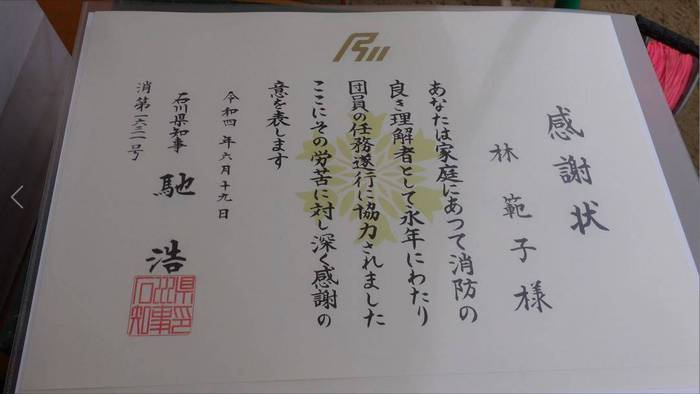 感謝状
林範子様
あなたは家庭にあつて消防の
良き理解者として永年にわたり
団員の任務遂行に協力されました
ここにその労苦に対し深く感謝の
意を表します
令和四年六月十九日
石川県知事 馳浩
石川県知事印
消第一六三一号